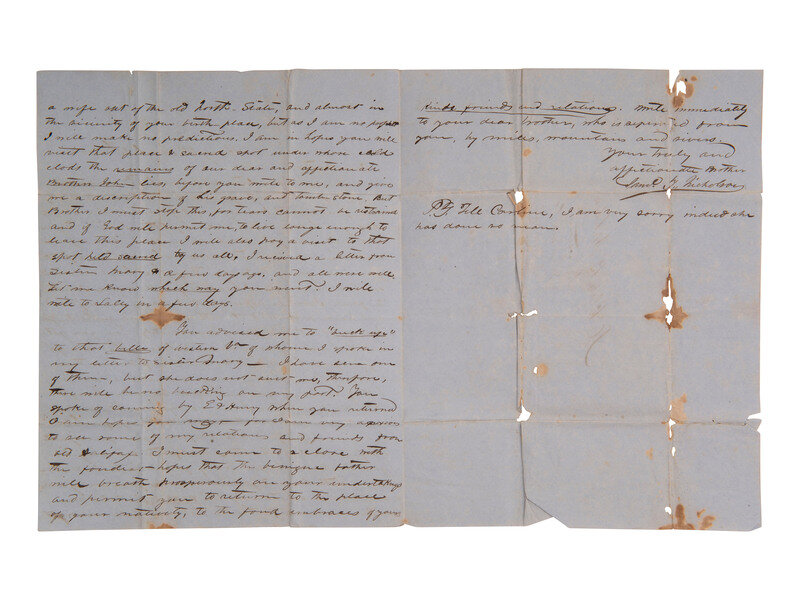 a wife out of the old North State, and almost in
the vicinity of your birth place, but as I am no prophet
I will make no predictions. I am in hopes you will
visit that place & sacred spot under whose cold
clods the remains of our dear and affectionate
Brother John lies, before you write to me, and give
me a discription of his grave, and tombstone. But
Brother, I must stop this, for tears cannot be restrained
and if God will permit me, to live longe enough to
leave this place I will also pay a visit to that
spot held sacred by us all. I received a letter from
Sister Mary a few days ago, and all were well.
Let me know which way you went. I will
write to in a few days.
You advised me to "buck up"
to that belle of western Va of whom I spoke in
my letter to Sister Mary — I have seen one
of them, but she does not suit me, therefore,
there will be no bucking on my part. You
spoke of coming by E & Henry when you returned
I am in hopes you may for I am very anxious
to see some of my relations and friends from
old Halifax. I must come to a close with
the fondest hopes that the benign father
will breath prosperously on your undertakings
and permit you to return to the place
of your nativity, to the fond embraces of your
kind friends and relations. Write immediately
to your dear brother, who is seperated from
you, by miles, mountains and rivers
Your truly and
affectionate Brother
Nicholson
PS Tell Caroline, I am very sorry indeed she
has done no more.